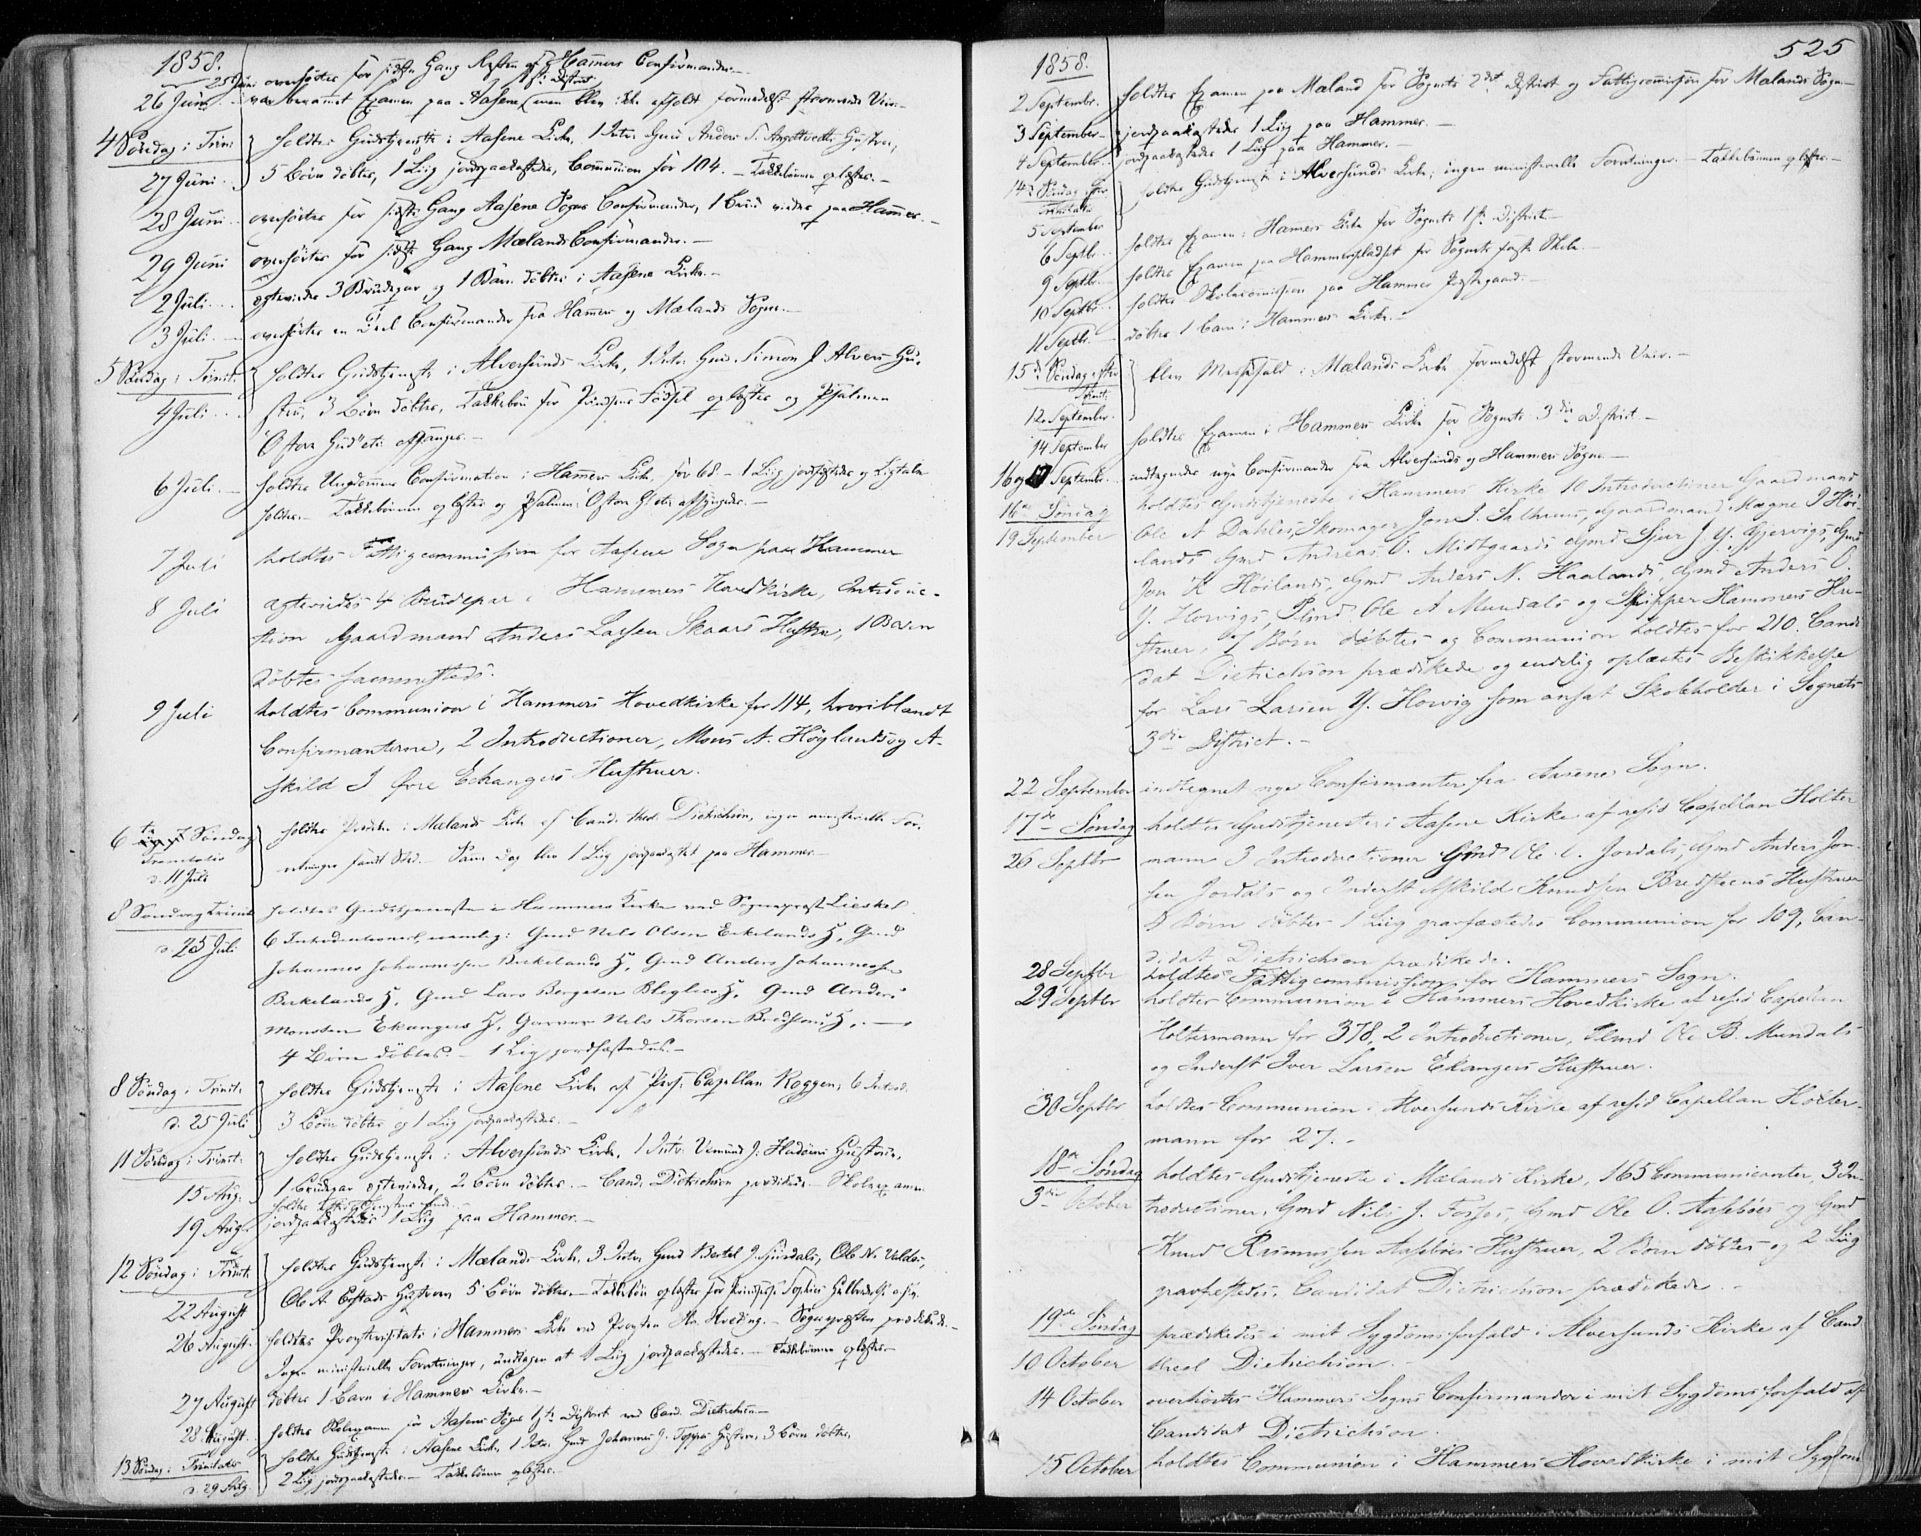 1858.
25 Juni overhörtes for sidste Gang Resten af Hammers Confirmander.
26 Juni var berammet Examen paa Aasene 1ste District, men blev ikke afholdt formedelst stormende Veir.
4 Søndag i Trinit. holdtes Gudstjeneste i Aasene Kirke, 1 Intr. Gmd Anders Hustru,
27 Juni. 5 Börn döbtes, 1 Liig jordpaakastedes, Communion for 104. – Takkebönnen oplæstes. –
28 Juni overhörtes for sidste Gang Aasene Sogns Confirmander, 1 viedes paa Hammer. –
29 Juni overhörtes for sidste Gang Mælands Confirmander. –
2 Juli. ægteviedes 3 Brudepar og 1 Barn döbtes i Aasene Kirke. –
3 Juli. overhörtes en Deel Confirmander fra Hammers og Mælands Sogne. –
5 Søndag i Trinit. holdtes Gudstjeneste i Alversunds Kirke, 1 Intr. Gmd. Simon J. Alvers Hu-
4 Juli. stru, 3 Börn döbtes, Takkebön for Prindsens Födsel oplæstes og Psalmen
"O store Gud" etc. afsunges. –
6 Juli. holdtes Ungdommens Confirmation i Hammers Kirke for 68 – 1 Liig jordfæstedes og Ligtale
holdtes. Takkebönnen oplæstes og Psalmen: O store G. etc. afsunges. –
7 Juli holdtes Fattigcommission for Aasene Sogn paa Hammer
8 Juli ægteviedes 4 Brudepar i Hammers Hovedkirke, Introduc-
tion Gaardmand Anders Larsen Skaars Hustru, 1 Barn
döbtes sammesteds.
9 Juli holdtes Communion i Hammers Hovedkirke for 114, hvoriblandt
Confirmanterne, 2 Introductioner, Mons A. Höylands og A-
skild I Øvre Eckangers Hustruer.
6te Søndag holdtes Præken i Mælands Kirke af Cand. theol. Dietrichson, ingen ministerielle For-
Trinitatis
d. 11 Juli retninger fandt Sted. Samme Dag blev 1 Liig jordpaakastet paa Hammer.
8 Søndag Trinit. holdtes Gudstjeneste i Hammers Kirke ved Sognepræst
d. 25 Juli 6 Introductioner, nemlig: Gmd Nels Olsen Eikelands H, Gmd
Johannes Johannessen Birkelands H, Gmd Anders Johannessen
Birkelands H, Gmd Lars Bergesen Bleglies H, Gmd Anders
Monsen Ekangers H, Garver Nels Thorsen H, –
4 Börn döbtes. – 1 Lig jordfæstedes. –
8 Søndag i Trinit. holdtes Gudstjeneste i Aasene Kirke af Pers. Capellan Roggen; 6 Introd.
d. 25 Juli 3 Börn döbtes og 1 Liig jordpaakastedes. –
11 Søndag i Trinit. holdtes Gudstjeneste i Alversunds Kirke, 1 Intr. Vemund J. Hustru,
15 Aug. 1 Brudepar ægteviedes, 2 Börn döbtes. – Cand. Dietrichson prædikede.
19 Aug. jordpaakastedes 1 Liig paa Hammer. –
12 Søndag i Trinit. holdtes Gudstjeneste i Mælands Kirke, 3 Intr. Gmd Bertel J. Ole N.
22 August Ole A. Hustruer, 5 Börn döbtes. – Takkebön oplæstes for Prindsesse Sophies
26 August. holdtes Provstevisitats i Hammers Kirke ved Provsten – Sognepræsten prædikede. –
Ingen ministerielle Forretninger, undtagen at 1 Liig jordpaakastedes. – Takkebönnen oplæstes –
27 August döbtes 1 Barn i Hammers Kirke. –
28 August. holdtes Skoleexamen for Aasene Sogns 1ste District ved Cand. Dietrichson –
13 Søndag i Trinitatis holdtes Gudstjeneste i Aasene Kirke, 1 Intr. Gmd Johannes J. Hustru, 3 Börn döbtes,
d. 29 Aug. 2 Liig jordpaakastedes – Takkebönnen oplæstes. –
525
1858.
2 September. holdtes Examen paa Mæland for Sognets 2det District og Fattigcommission for Mælands Sogn –
3 September – jordpaakastedes 1 Liig paa Hammer. –
4 September. jordpaakastedes 1 Liig paa Hammer. –
14de Søndag efter holdtes Gudstjeneste i Alversunds Kirke; ingen ministerielle Forretninger. – Takkebönnen oplæstes. –
Trinitatis
5 September
6 Septbr. holdtes Examen i Hammers Kirke for Sognets 1ste District –
9 Septbr. holdtes Examen paa Hammerspladset for Sognets faste Skole. –
10 Septbr. holdtes Skolecommission paa Hammers Præstegaard. –
11 Septbr. döbtes 1 Barn i Hammers Kirke. –
15de Søndag efter blev Messefald i Mælands Kirke formedelst stormende Veir. –
Trinit.
12 September.
14 September holdtes Examen i Hammers Kirke for Sognets 3die District –
16 og 17 Septembr. indtegnedes nye Confirmander fra Alversunds og Hammers Sogne –
16de Søndag holdtes Gudstjeneste i Hammers Kirke 10 Introductioner Gaardmand
19 September Ole A Dahles, Skomager Jon J. Salhuus, Gaardmand Magne J Höi-
lands Gmd Andreas O. Midtgaards Gmd Sjur J. Y. Gjervigs, Gmd
Jon K Höilands, Gmd Anders N. Haalands, Gmd Anders O.
Y. Horvigs, Plmd Ole A Mundals og Skipper Hammers Hu-
struer, 7 Börn döbtes og Communion holdtes for 210. Candi-
dat Dietrichson prædikede og endelig oplæstes Beskikkelse
for Lars Larsen Y. Horvig som ansat Skoleholder i Sognets
3die District. –
22 September indtegnet nye Confirmanter fra Aasene Sogn.
17de Søndag holdtes Gudstjeneste i Aasene Kirke af resid Capellan Holter-
26 Septbr mann 3 Introductioner Gmd Ole O. Jordals, Gmd Anders Jon-
sen Jordals og Inderst Askild Knudsen Bredsteens Hustruer
8 Börn döbtes 1 Liig gravfæstedes Communion for 109, Can-
didat Dietrichson prædikede.
28 Septbr holdtes Fattigcommission for Hammers Sogn.
29 Septbr holdtes Communion i Hammers Hovedkirke af resid Capellan
Holtermann for 378, 2 Introductioner, Plmd Ole B. Mundals
og Inderst Iver Larsen Ekangers Hustruer.
30 Septbr holdtes Communion i Alversunds Kirke af resid Capellan Holter-
mann for 27. –
18de Søndag holdtes Gudstjeneste i Mælands Kirke, 165 Communicanter, 3 In-
3die October troductioner, Gmd Nils J. Fosses, Gmd Ole O. Aasebóes og Gmd
Knud Rasmussen Aasebóes Hustruer, 2 Börn döbtes og 2 Liig
gravfæstedes. Candidat Dietrichson prædikede. –
19de Søndag prædikedes i mit Sygdomsforfald i Alversunds Kirke af Cand
10 October theol Dietrichson. –
14 October overhörtes Hammers Sogns Confirmander i mit Sygdomsforfald af
Candidat Dietrichson.
15 October holdtes Communion i Hammers Hovedkirke i mit Sygdoms